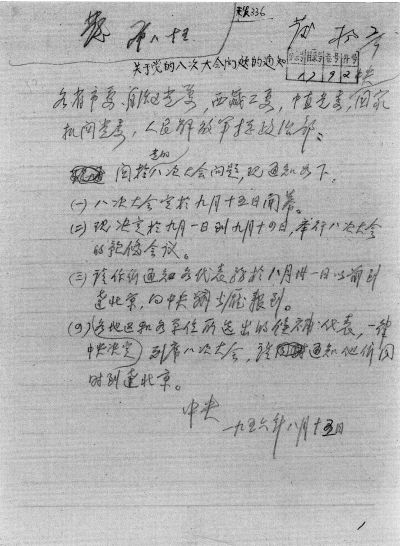 关于党的八次大会问题的通知
各省市委、自治区党委,西藏工委,中直党委,国家
机关党委,人民解放军总政治部:
关於党的八次大会问题,现通知如下。
(一)八次大会定於九月十五日开幕。
(二)现决定於九月一日到九月十四日,举行八次大会
的预备会议。
(三)请你们通知各代表务於八月廿一日以前到
达北京,向中央办公厅报到。
(四)各地区和各单位所选出的候补代表,一律
中央决定 列席八次大会,请通知他们同
时到达北京。
中央
一九五六年八月十五日
1